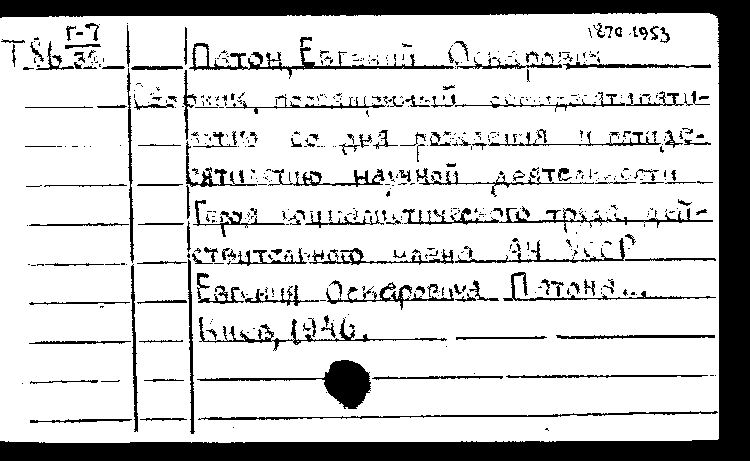 1870-1953
Т86 Г-7/36 Патон, Евгений Оскарович
Сборник, посвященный семидесятипяти-
летию со дня рождения и пятиде-
сятилетию научной деятельности
Героя социалистического труда, дей-
ствительного члена АН УССР
Евгения Оскаровича Патона...
Киев, 1946.